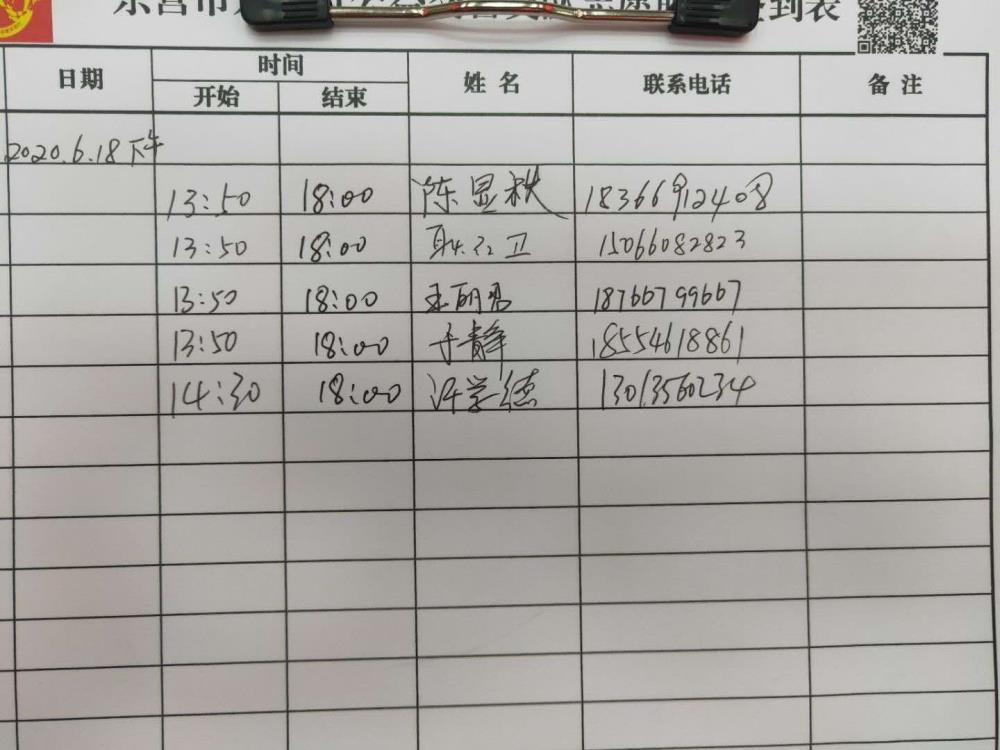 东营市
签到表
日期 时间 姓名 联系电话 备注
开始 结束
2020.6.18下午
13:50 18:00 陈显秩 18366912408
13:50 18:00 耿红卫 15066082823
13:50 18:00 王丽君 18766799667
13:50 18:00 于静 18554618861
14:30 18:00 许学德 13013560234